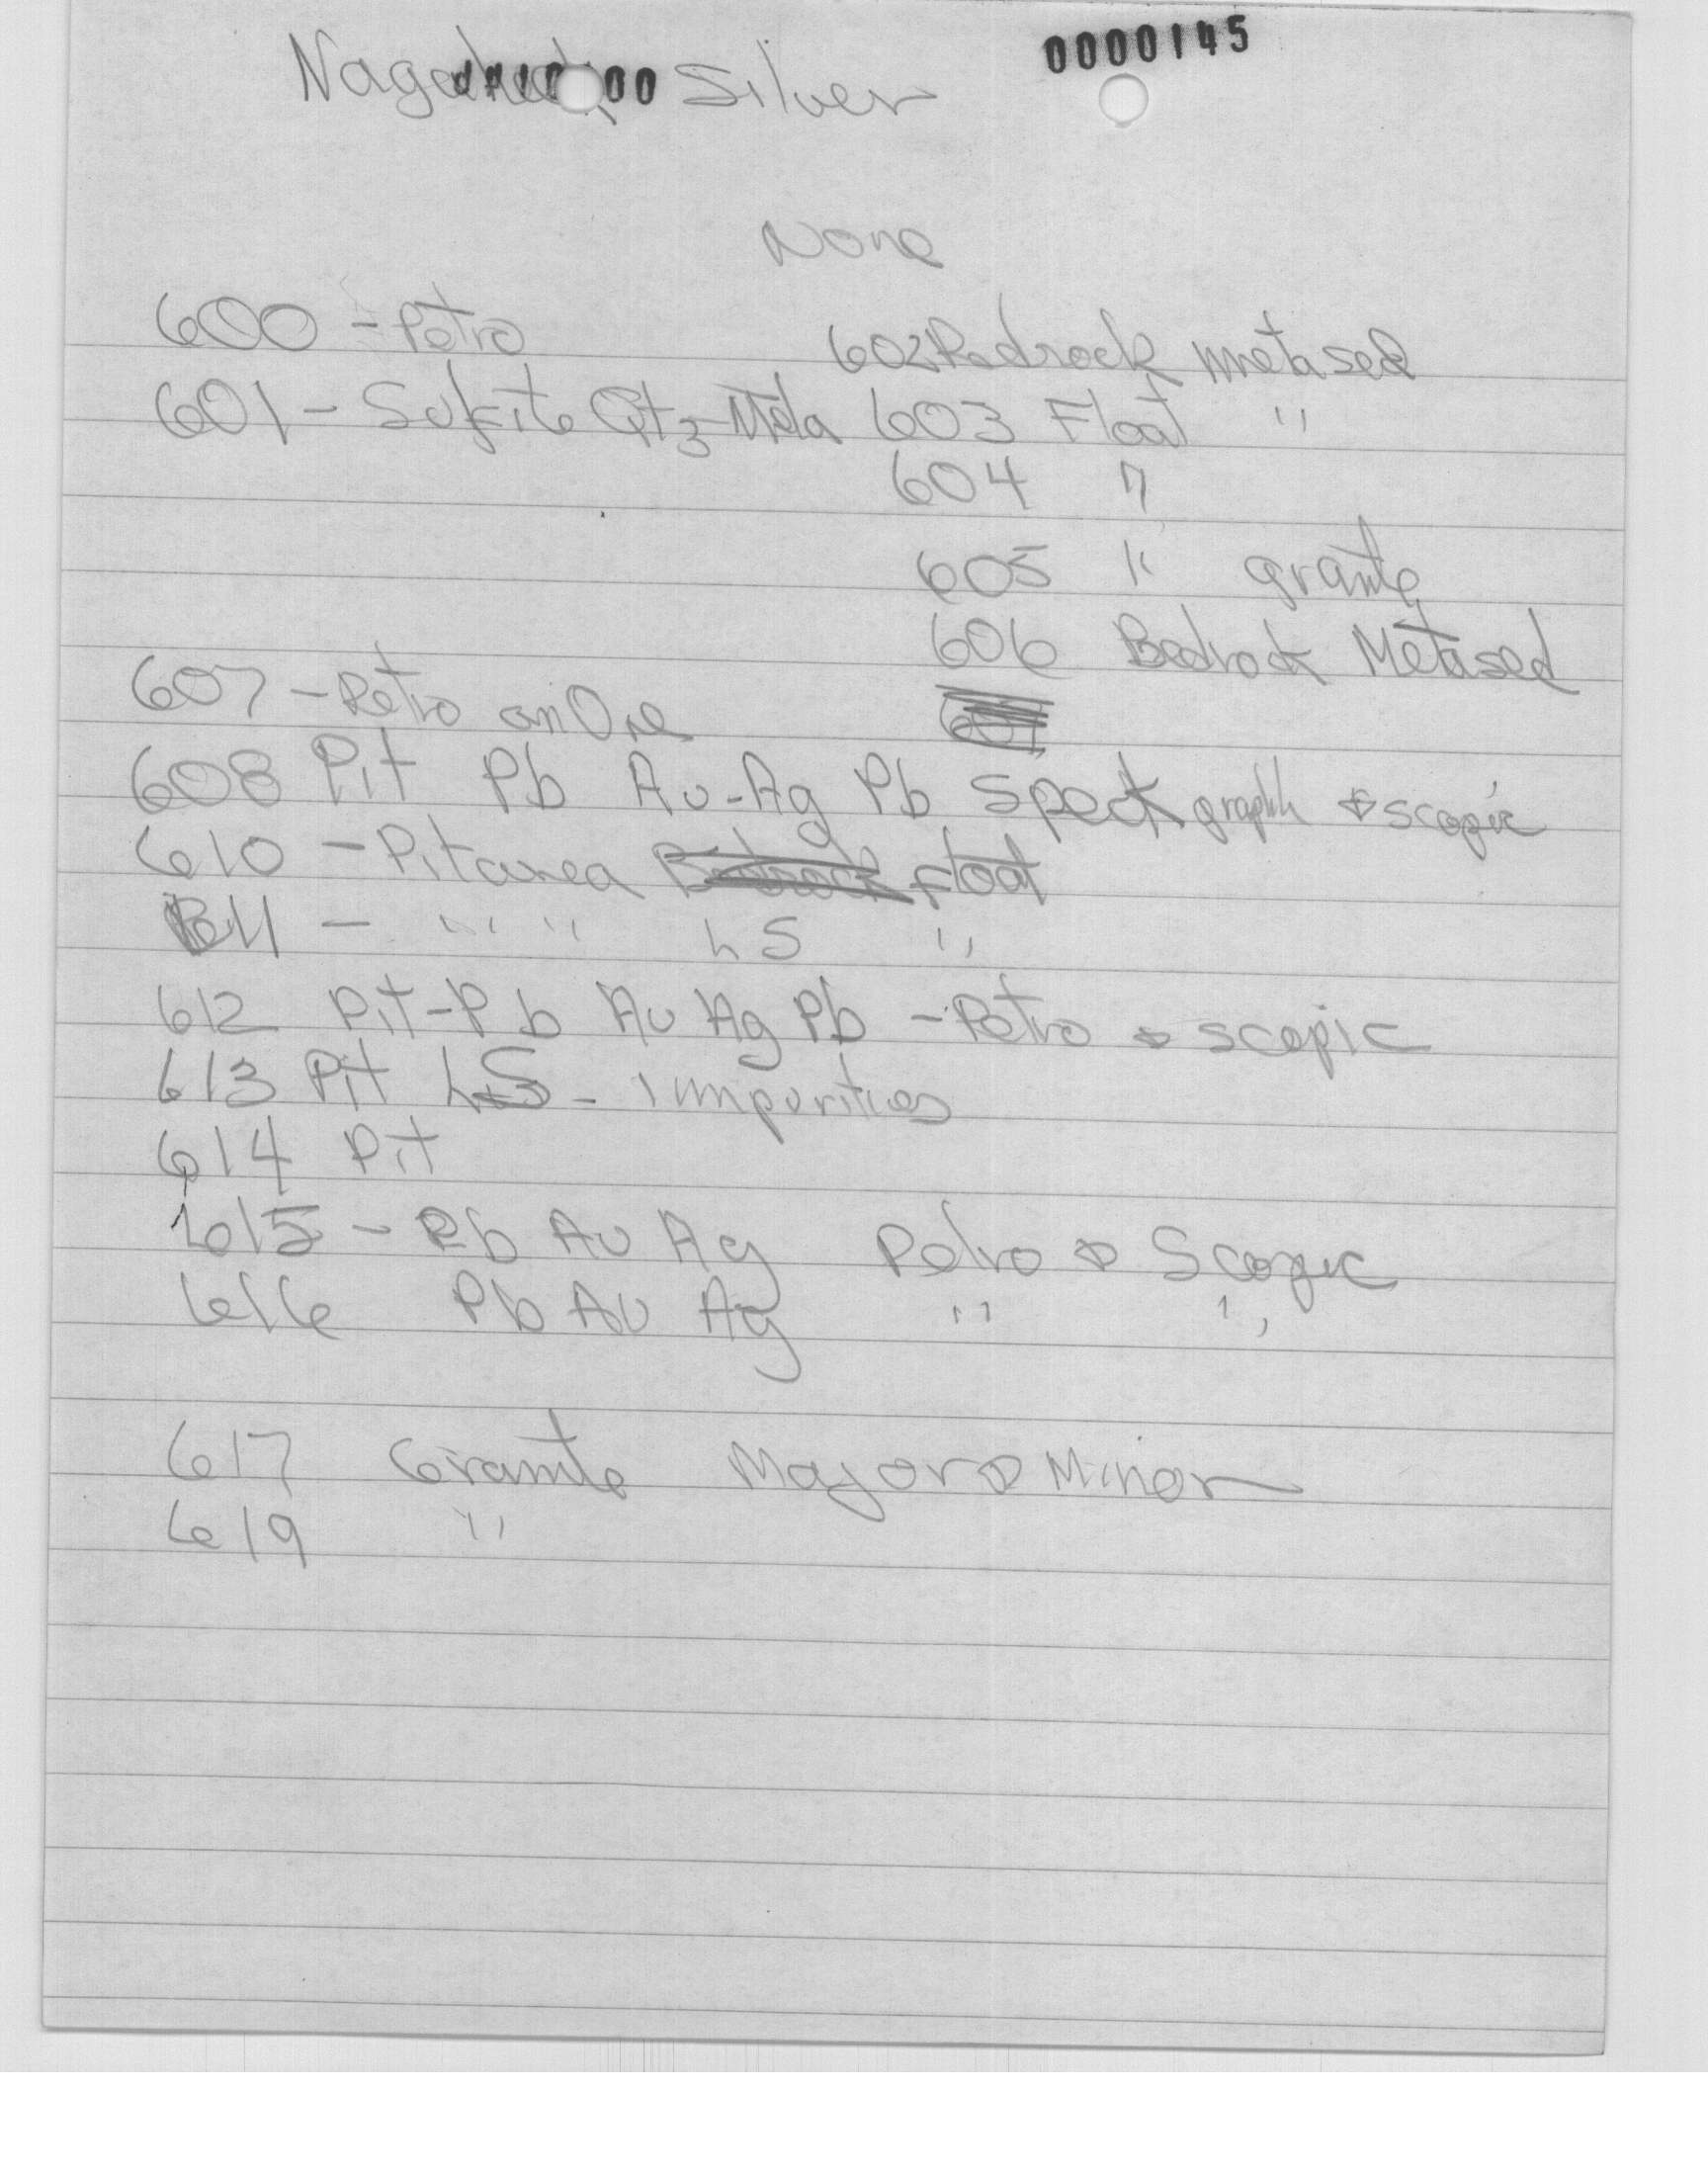 0000145
00 Silver
None
600 - Petro
602 Bedrock metased
601 - Sulfite Qtz Meta 603 Float "
604 "
605 " granite
606 Bedrock Metased
607 - Petro on Ore
608 Pit Pb Au-Ag Pb Spect graph & scopic
610 - Pit area Bedrock Float
611 - " " LS "
612 Pit-Pb Au Ag Pb - Petro & scopic
613 Pit LS - impurities
614 Pit
615 - Pb Au Ag Petro & Scopic
616 Pb Au Ag " "
617 Granite Major & Minor
619 "